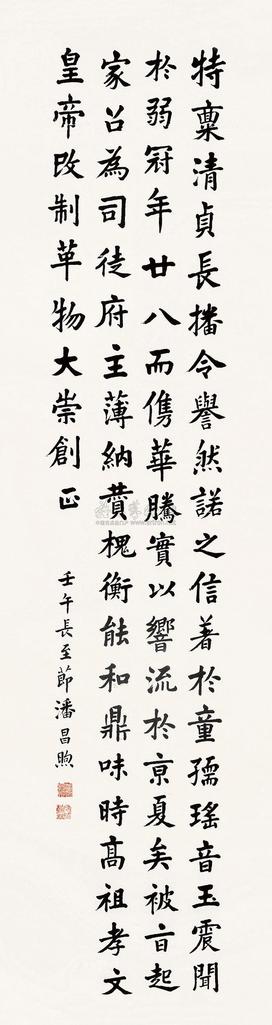 特稟清貞長播令譽然諾之信著於童孺瑤音玉震聞
於弱冠年廿八而儁華騰實以響流於京夏矣被旨起
家召為司徒府主薄納贊槐衡能和鼎味時高祖孝文
皇帝改制革物大崇創正
壬午長至節潘昌煦